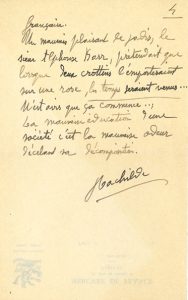 4
Française.
Un mauvais plaisant de jadis, le
sieur Alphonse Karr, prétendait que
lorsque deux crottins l'emporteraient
sur une rose, les temps seraient venus...
N'est-ce pas que ça commence...;
La mauvaise éducation d'une
société c'est la mauvaise odeur
décelant sa décomposition.
Rachilde